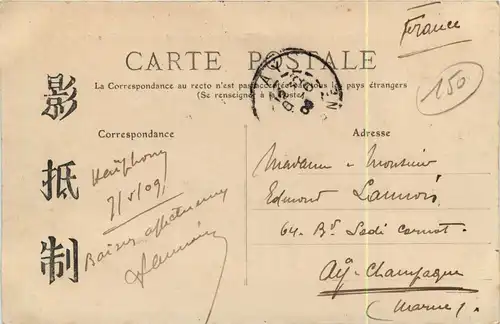 France
150
CARTE POSTALE
La Correspondance au recto n'est pas acceptée de tous les pays étrangers
(Se renseigner à la Poste)
Correspondance
Adresse
影
抵
制
Haïphong
7/5/09
Baisers affectueux
Madame & Monsieur
Edmond Lannois
64. Bd Sadi Carnot.
Aÿ-Champagne
(Marne).